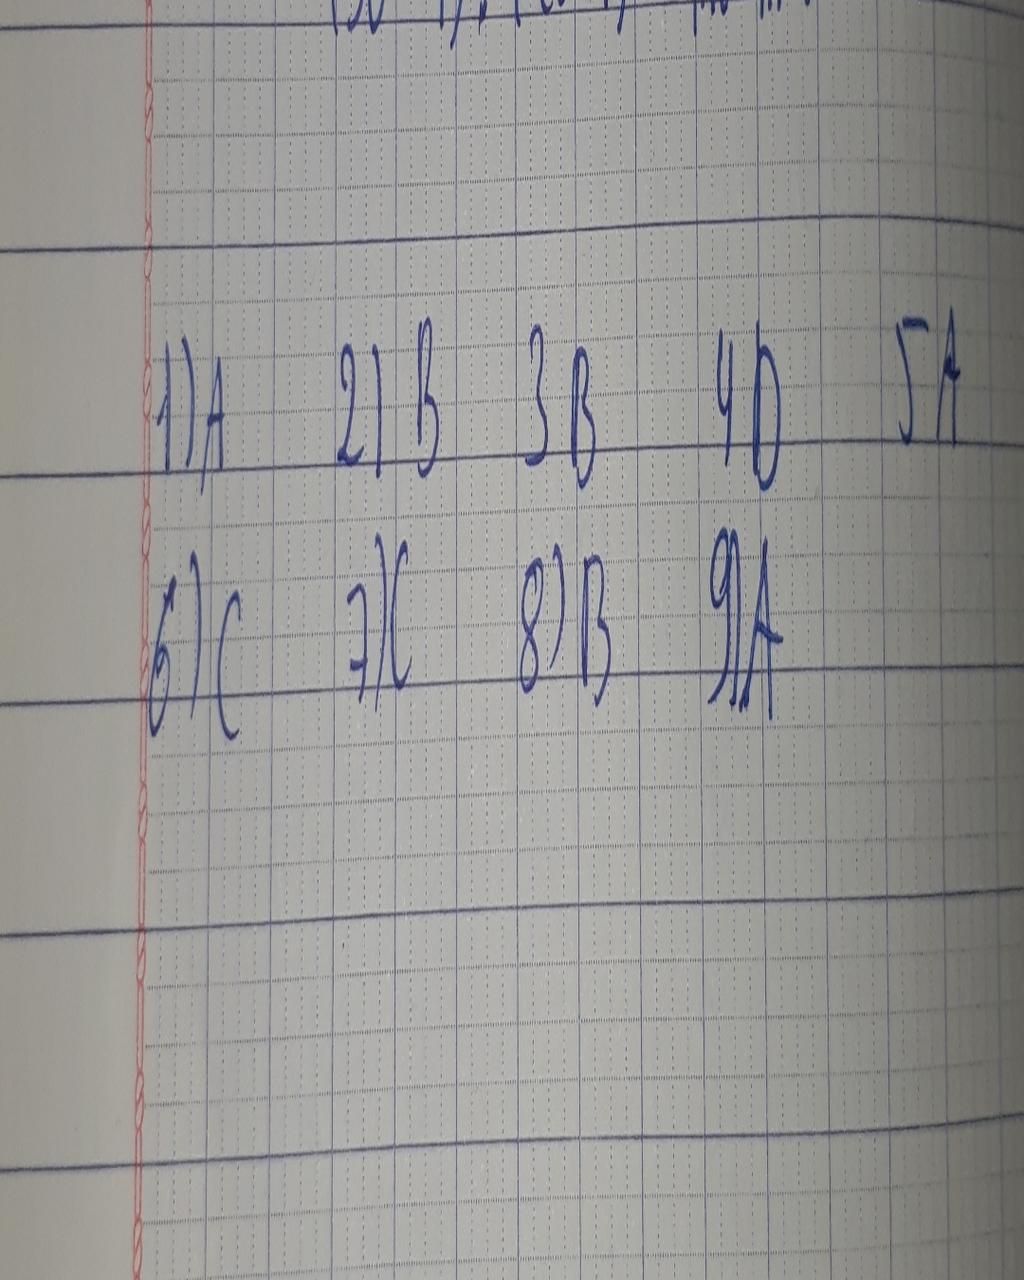 1) A 2) B 3 B 4 D 5 A
6) C 7) C 8) B 9) A